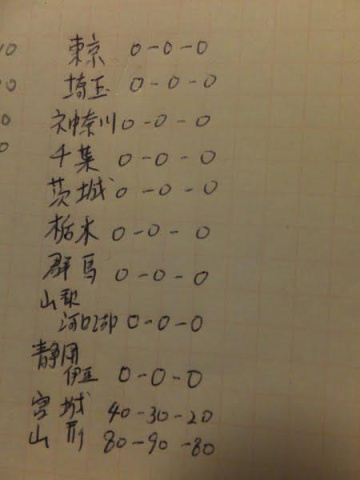 東京 0-0-0
埼玉 0-0-0
神奈川 0-0-0
千葉 0-0-0
茨城 0-0-0
栃木 0-0-0
群馬 0-0-0
山梨
河口湖 0-0-0
静岡
伊豆 0-0-0
宮城 40-30-20
山形 80-90-80